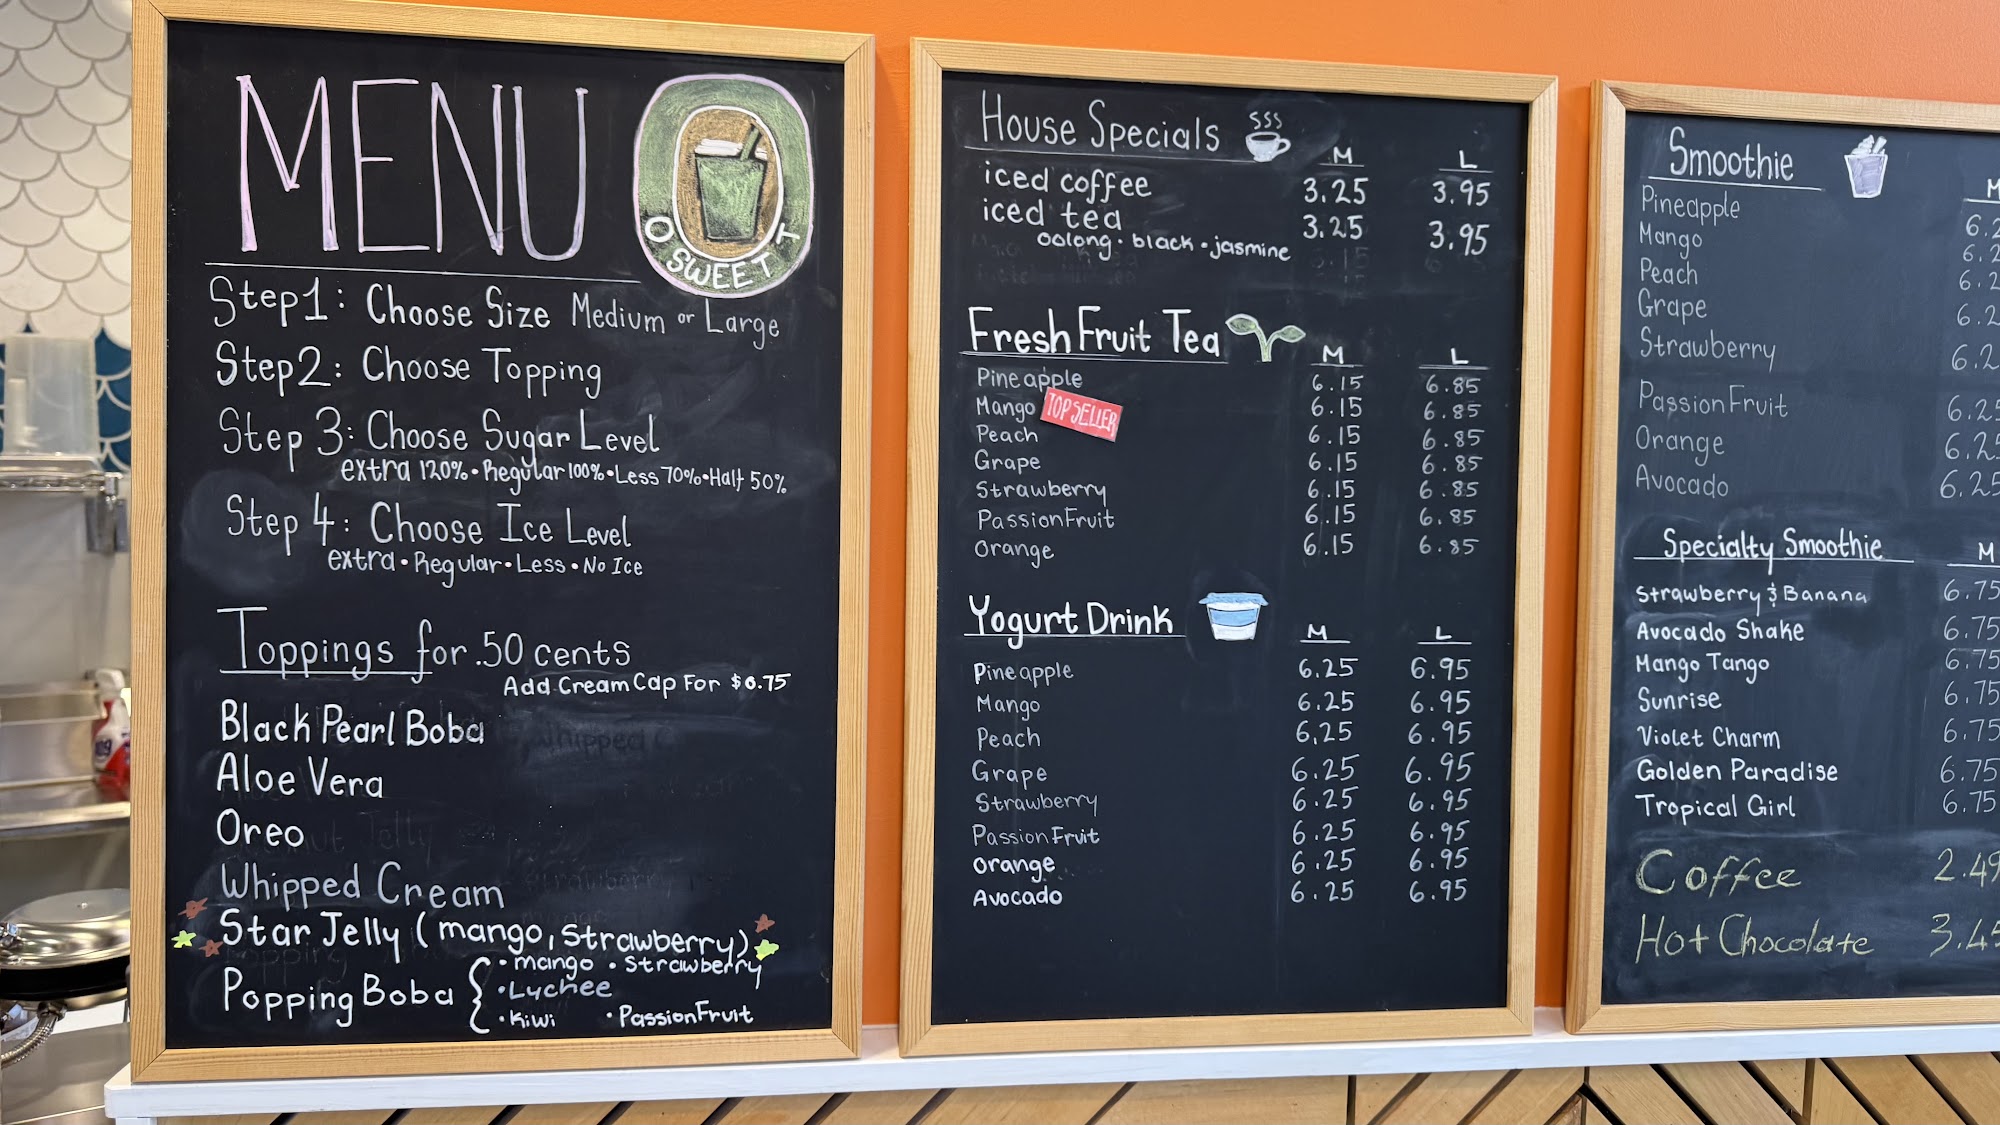 MENU
O SWEET T
Step 1: Choose Size Medium or Large
Step 2: Choose Topping
Step 3: Choose Sugar Level
extra 120% • Regular 100% • Less 70% • Half 50%
Step 4: Choose Ice Level
extra • Regular • Less • No Ice
Toppings for .50 cents
Add Cream Cap For $0.75
Black Pearl Boba
Aloe Vera
Oreo
Whipped Cream
Star Jelly (mango, strawberry)
Popping Boba { • mango • Strawberry
• Lychee
• Kiwi • PassionFruit
House Specials
M L
iced coffee 3.25 3.95
iced tea 3.25 3.95
oolong • black • jasmine
Fresh Fruit Tea
M L
Pineapple 6.15 6.85
Mango TOP SELLER 6.15 6.85
Peach 6.15 6.85
Grape 6.15 6.85
Strawberry 6.15 6.85
PassionFruit 6.15 6.85
Orange 6.15 6.85
Yogurt Drink
M L
Pineapple 6.25 6.95
Mango 6.25 6.95
Peach 6,25 6.95
Grape 6.25 6.95
Strawberry 6.25 6.95
Passion Fruit 6.25 6.95
Orange 6.25 6.95
Avocado 6.25 6.95
Smoothie
M
Pineapple 6.2
Mango 6.2
Peach 6.2
Grape 6.2
Strawberry 6.2
PassionFruit 6.25
Orange 6.25
Avocado 6.25
Specialty Smoothie M
Strawberry & Banana 6.75
Avocado Shake 6.75
Mango Tango 6.75
Sunrise 6.75
Violet Charm 6.75
Golden Paradise 6.75
Tropical Girl 6.75
Coffee 2.49
Hot Chocolate 3.45